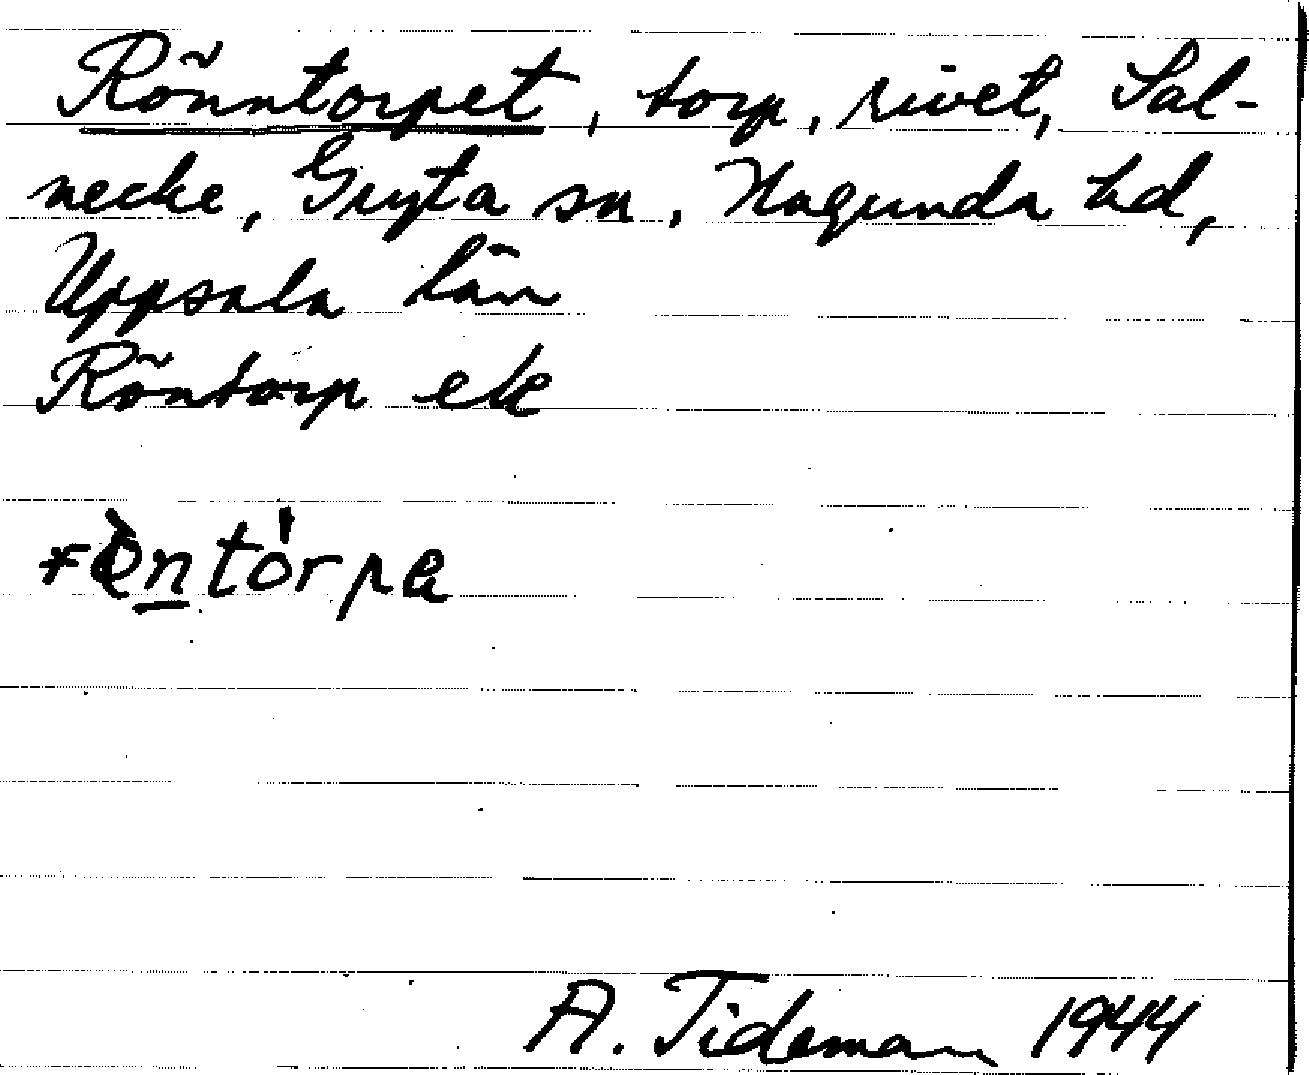 Rönntorpet, torp, rivet, Sal-
necke, Gryta sn, Hagunda hd,
Uppsala län
Röntorp ek
A. Tideman 1944